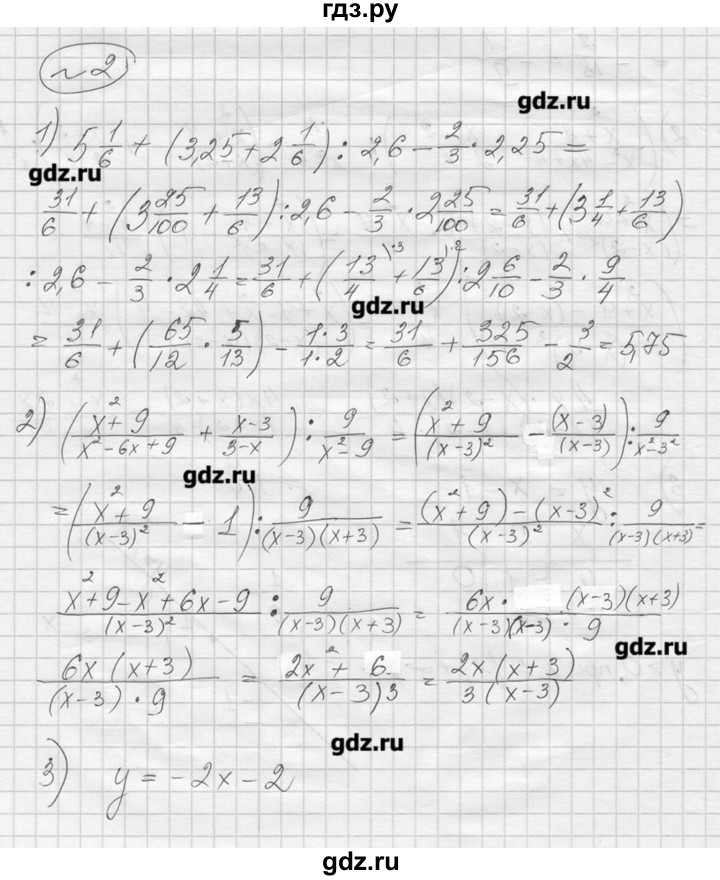 гдз.ру
№2
gdz.ru
1) 5 1/6 + (3,25 + 2 1/6) : 2,6 − 2/3 · 2,25 =
gdz.ru
31/6 + (3 25/100 + 13/6) : 2,6 − 2/3 · 2 25/100 = 31/6 + (3 1/4 + 13/6)
: 2,6 − 2/3 · 2 1/4 = 31/6 + (13/4 \·3 + 13/6 \·2) : 2 6/10 − 2/3 · 9/4
gdz.ru
= 31/6 + (65/12 · 5/13) − 1·3/1·2 = 31/6 + 325/156 − 3/2 = 5,75
2) (x²+9/x²−6x+9 + x−3/3−x) : 9/x²−9 = (x²+9/(x−3)² − (x−3)/(x−3)) : 9/x²−3²
gdz.ru
= (x²+9/(x−3)² − 1) : 9/(x−3)(x+3) = (x²+9)−(x−3)²/(x−3)² : 9/(x−3)(x+3) =
x²+9−x²+6x−9/(x−3)² : 9/(x−3)(x+3) = 6x · (x−3)(x+3)/(x−3)(x−3) · 9
gdz.ru
6x(x+3)/(x−3) · 9 = 2x²+6/(x−3)3 = 2x(x+3)/3(x−3)
gdz.ru
3) y = −2x − 2
gdz.ru